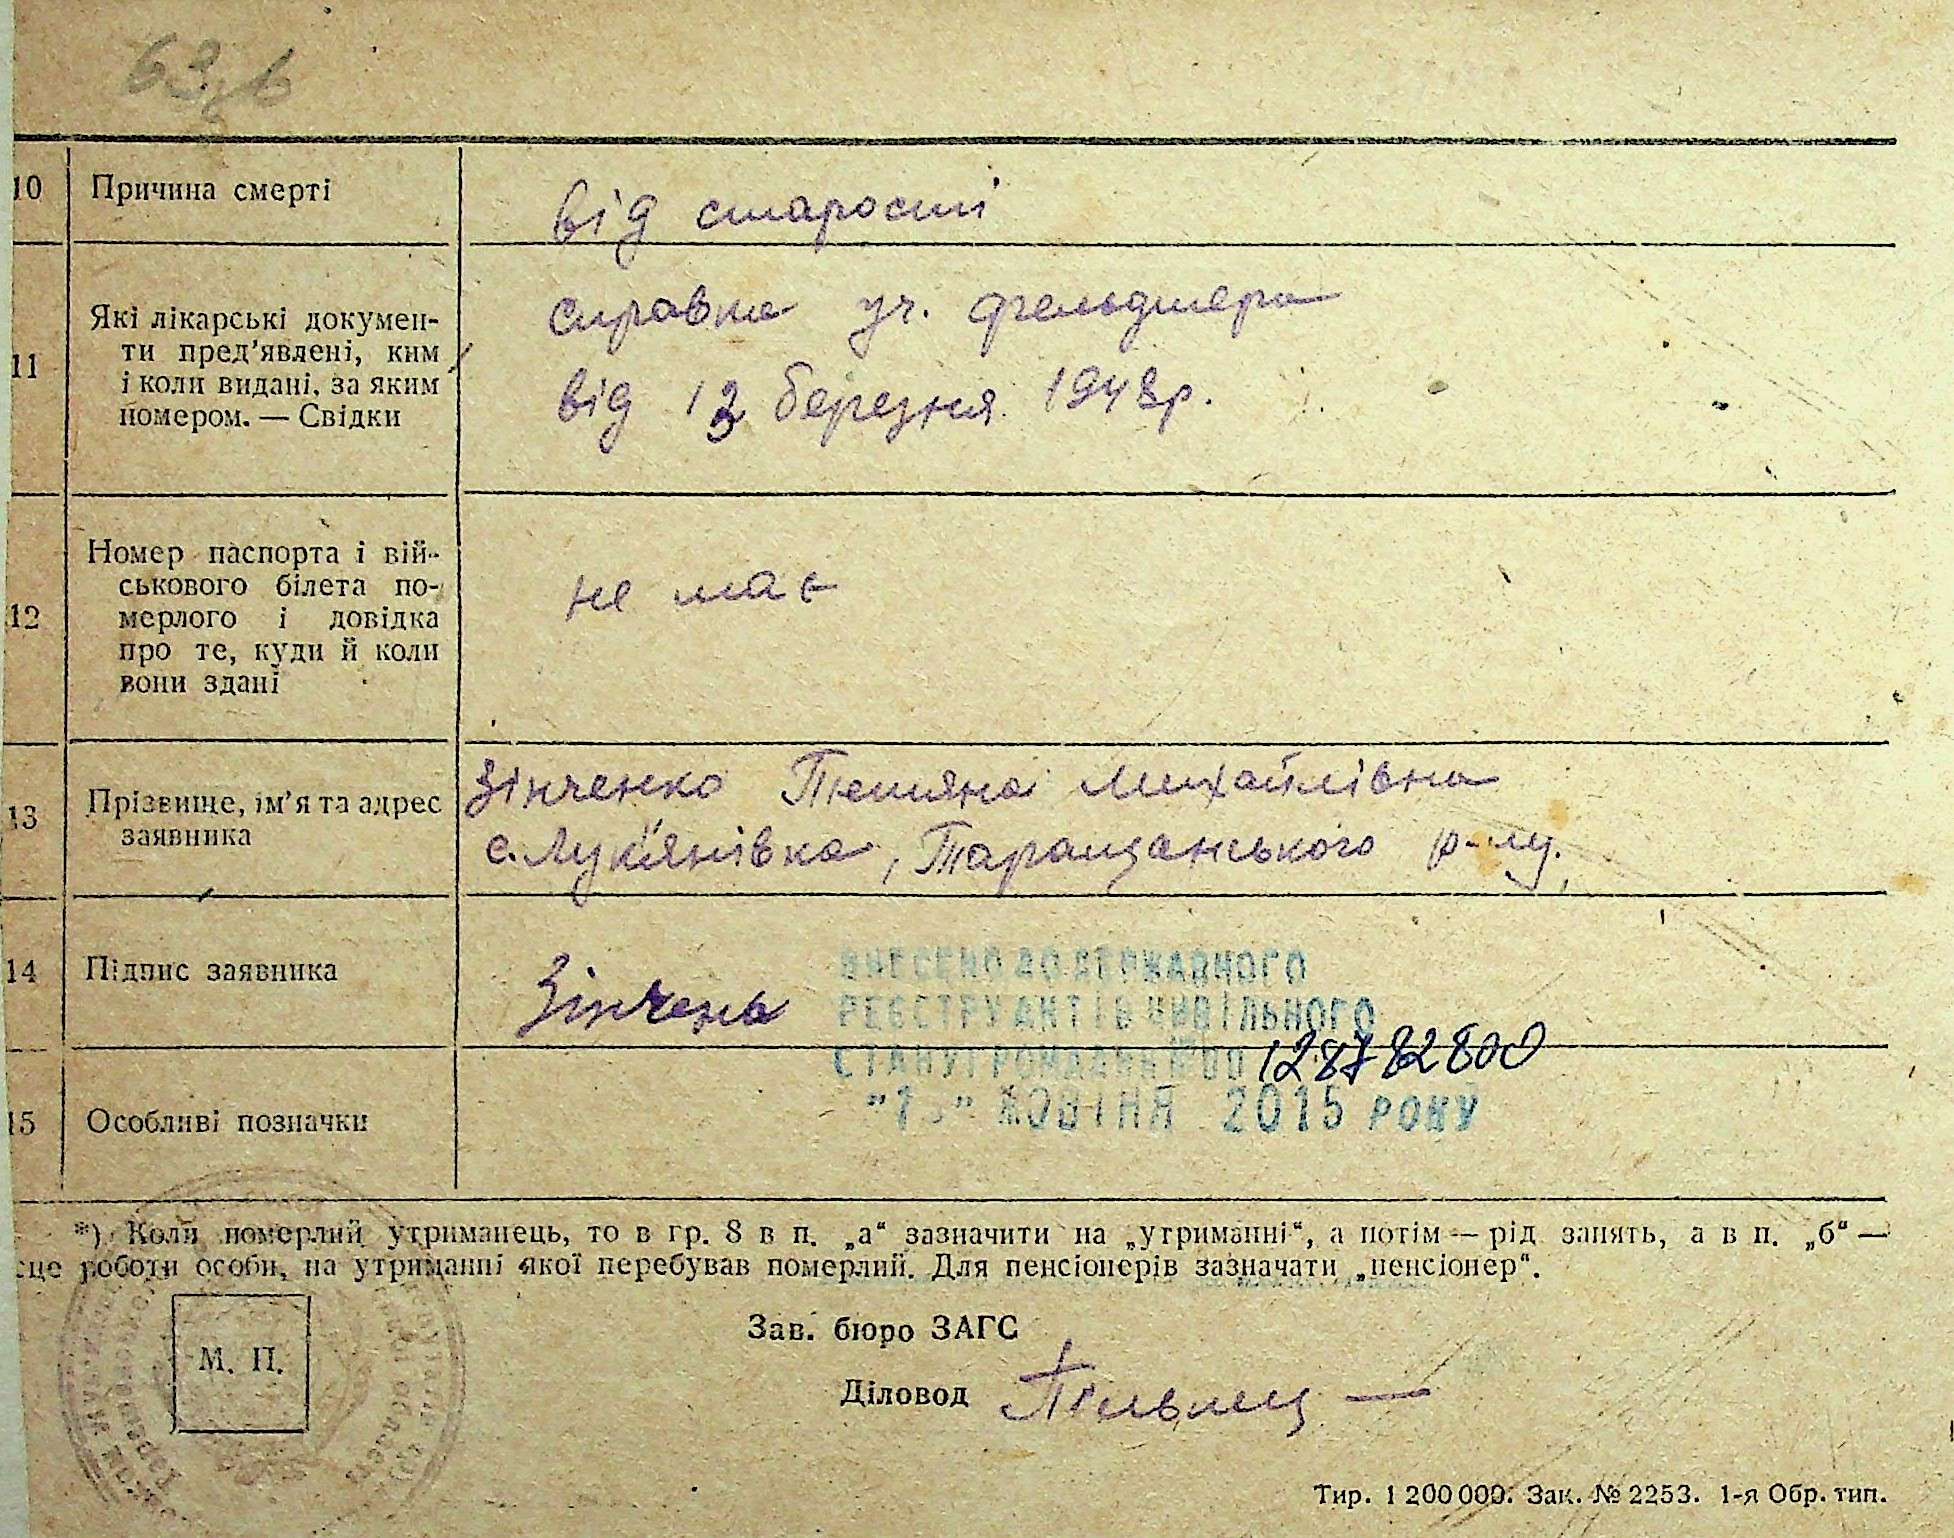 63
10 Причина смерті від старості
11 Які лікарські докумен-
ти пред'явлені, ким
і коли видані, за яким
номером. — Свідки
справка уч. фельдшера
від 13 березня 1948р.
12 Номер паспорта і вій-
ськового білета по-
мерлого і довідка
про те, куди й коли
вони здані
не має
13 Прізвище, ім'я та адрес
заявника
Зінченко Тетяна Михайлівна
с. Лук'янівка, Таращанського р-ну.
14 Підпис заявника Зінчень
ВНЕСЕНО ДО ДЕРЖАВНОГО
РЕЄСТРУ АКТІВ ЦИВІЛЬНОГО
СТАНУ ГРОМАДЯН 128782800
ЖОВТНЯ 2015 РОКУ
15 Особливі позначки
*) Коли померлий утриманець, то в гр. 8 в п. „а“ зазначити на „утриманні“, а потім — рід занять, а в п. „б“ —
сце роботи особи, на утриманні якої перебував померлий. Для пенсіонерів зазначати „пенсіонер“.
М. П.
Зав. бюро ЗАГС
Діловод
Тир. 1 200 000. Зак. № 2253. 1-я Обр. тип.